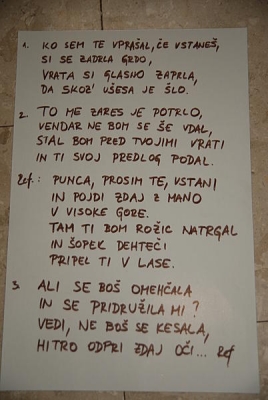 1. KO SEM TE VPRAŠAL, ČE VSTANEŠ,
SI SE ZADRLA GRDO,
VRATA SI GLASNO ZAPRLA,
DA SKOZ' UŠESA JE ŠLO.
2. TO ME ZARES JE POTRLO,
VENDAR NE BOM SE ŠE VDAL,
STAL BOM PRED TVOJIMI VRATI
IN TI SVOJ PREDLOG PODAL.
Ref.: PUNCA, PROSIM TE, VSTANI
IN POJDI ZDAJ Z MANO
V VISOKE GORE.
TAM TI BOM ROŽIC NATRGAL
IN ŠOPEK DEHTEČI
PRIPEL TI V LASE.
3. ALI SE BOŠ OMEHČALA
IN SE PRIDRUŽILA MI?
VEDI, NE BOŠ SE KESALA,
HITRO ODPRI ZDAJ OČI... Ref